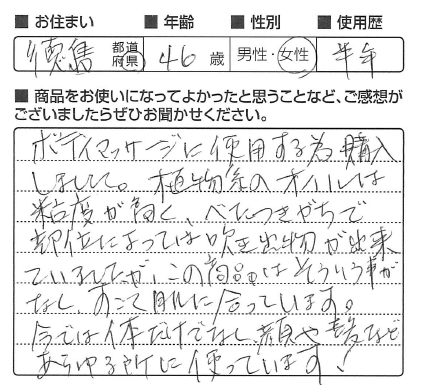 ■ お住まい ■ 年齢 ■ 性別 ■ 使用歴
徳島 都道府県 46歳 男性・女性 半年
■ 商品をお使いになってよかったと思うことなど、ご感想が
ございましたらぜひお聞かせください。
ボディマッサージに使用する為購入
しました。植物系のオイルは
粘度が高く、べたつきがちで
部位によっては吹き出物が出来
ていましたが、この商品はそういう事が
なし、すごく肌に合っています。
今では体だけでなし、顔や髪など
あらゆる所に使っています!